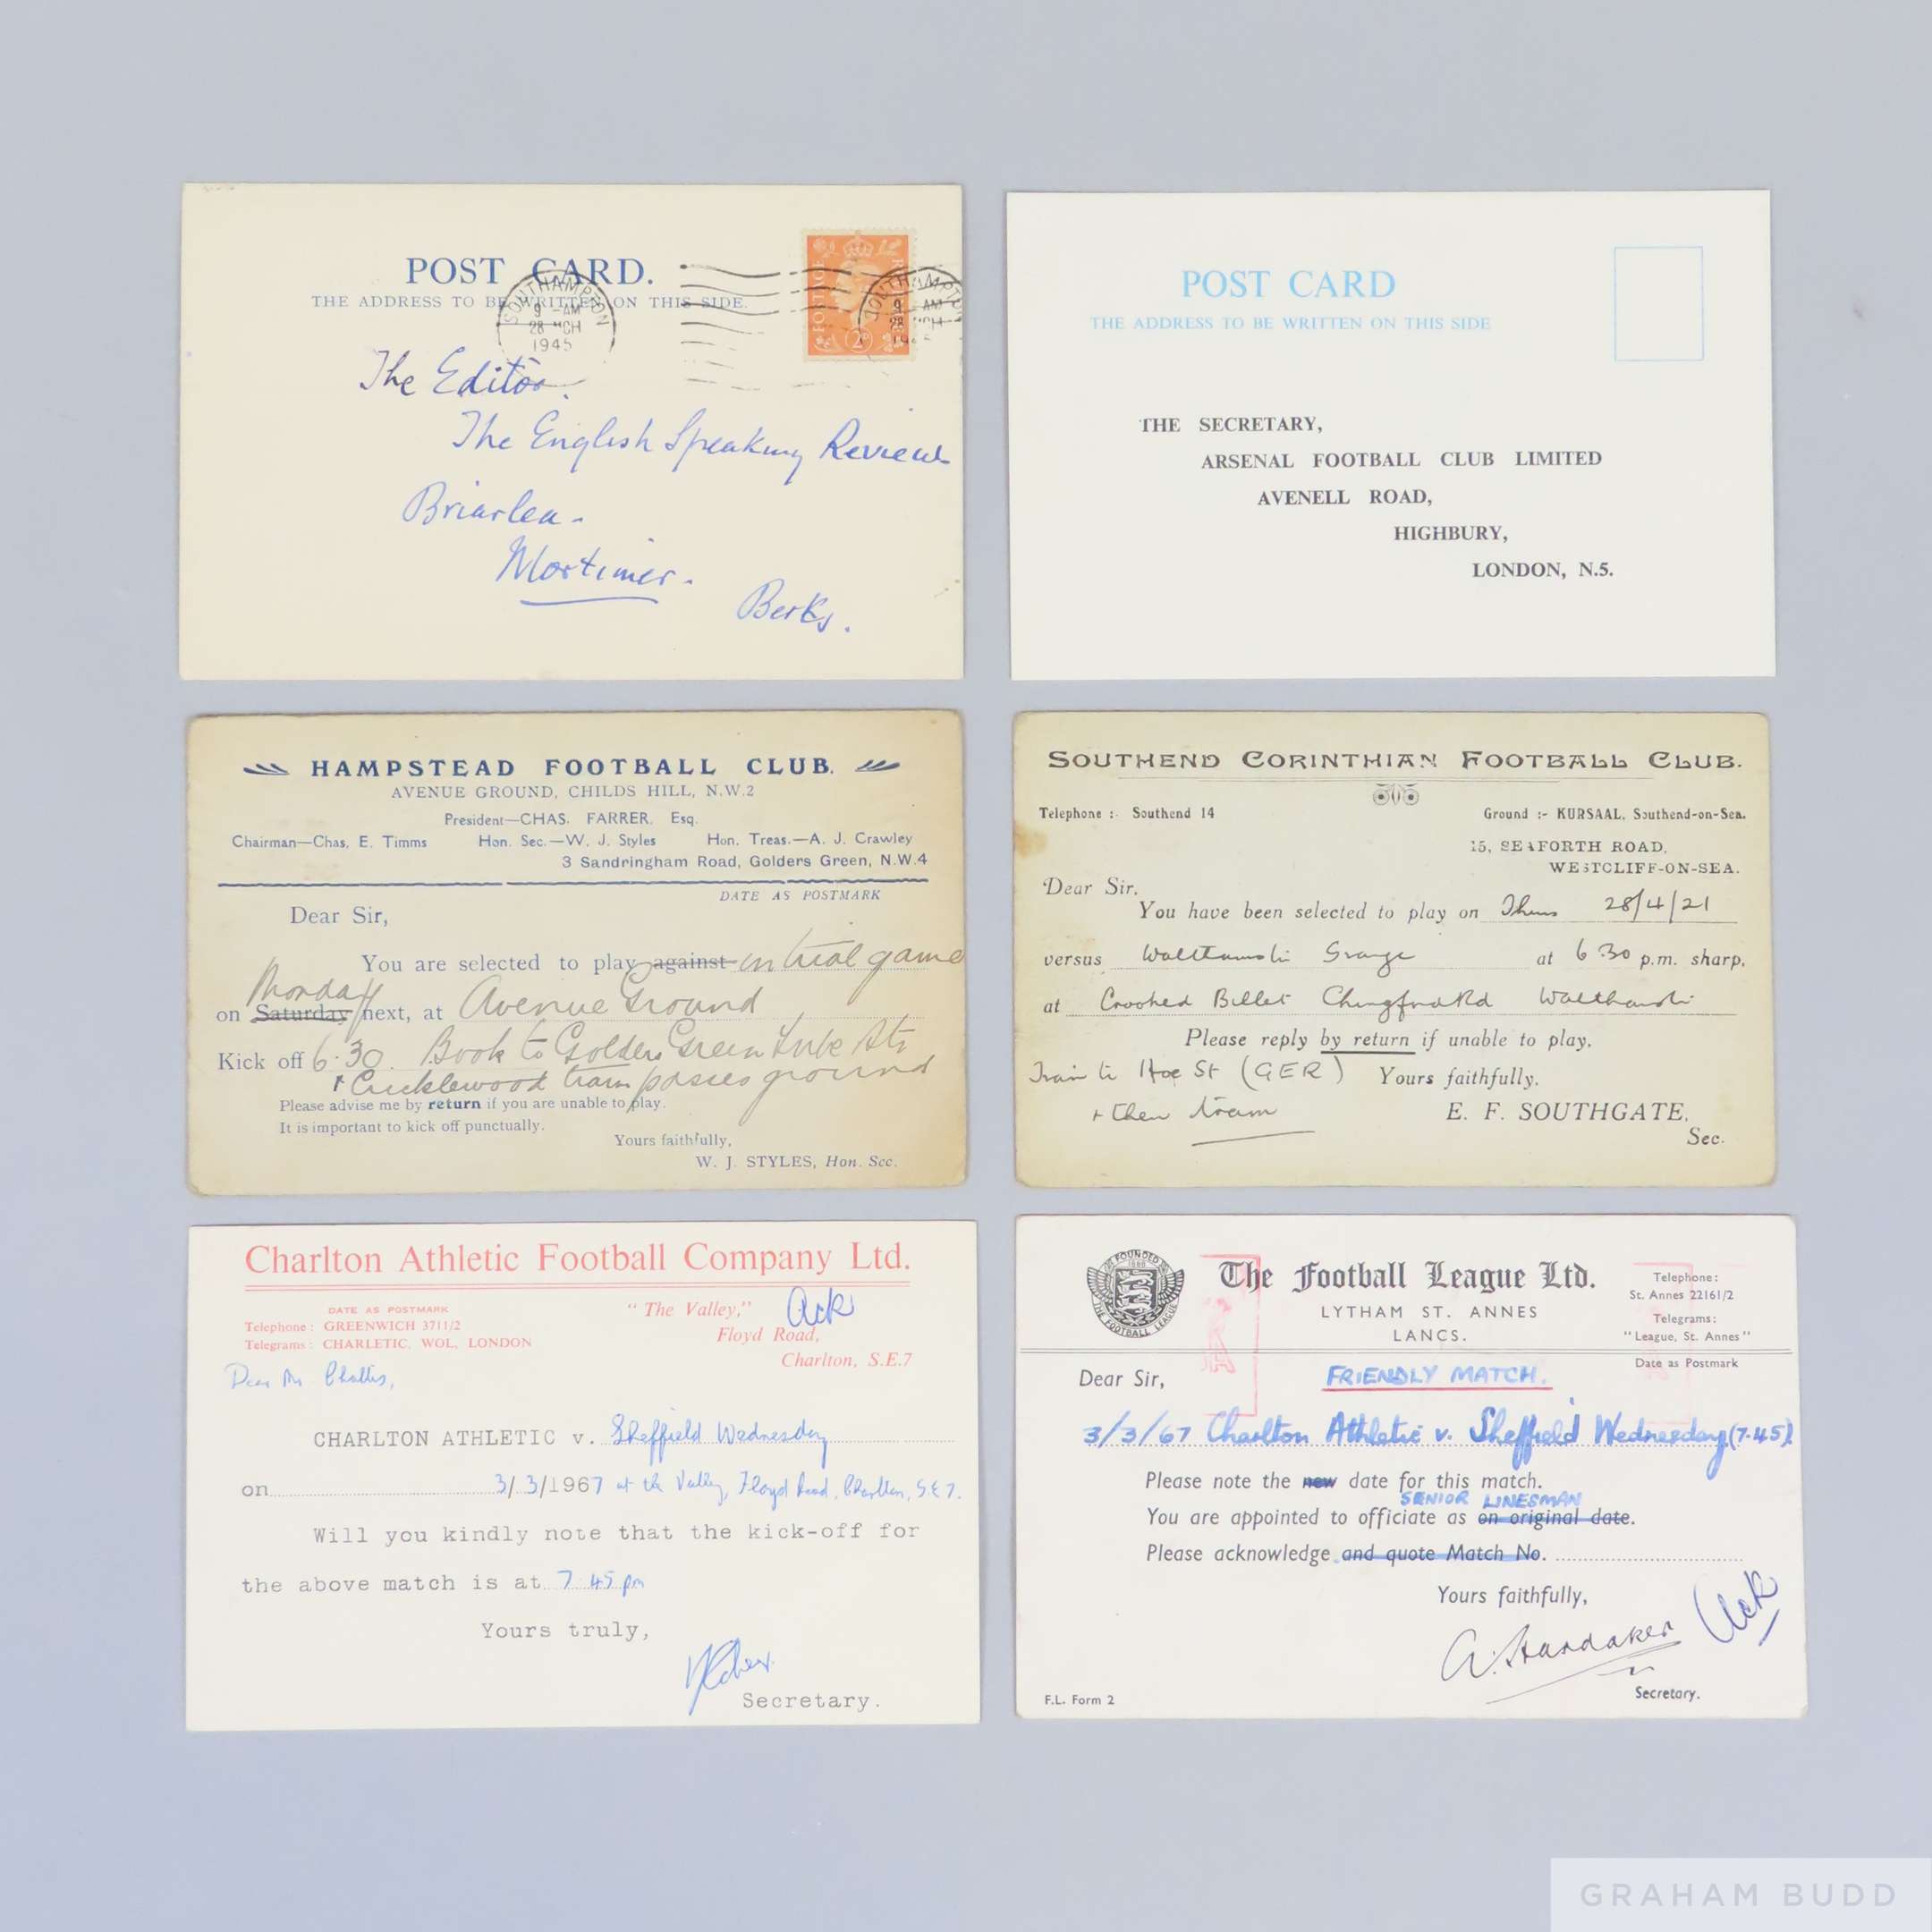 POST CARD.
THE ADDRESS TO BE WRITTEN ON THIS SIDE.
SOUTHAMPTON
9 - AM
28 MCH
1945
POSTAGE
2
SOUTHAMPTON
9 AM
The Editor.
The English Speaking Review
Briarlea.
Mortimer.
Berks.
POST CARD
THE ADDRESS TO BE WRITTEN ON THIS SIDE
THE SECRETARY,
ARSENAL FOOTBALL CLUB LIMITED
AVENELL ROAD,
HIGHBURY,
LONDON, N.5.
HAMPSTEAD FOOTBALL CLUB.
AVENUE GROUND, CHILDS HILL, N.W.2
President—CHAS. FARRER, Esq.
Chairman—Chas. E. Timms Hon. Sec.—W. J. Styles Hon. Treas.—A. J. Crawley
3 Sandringham Road, Golders Green, N.W.4
DATE AS POSTMARK
Dear Sir,
You are selected to play against in trial game
Monday
on Saturday next, at Avenue Ground
Kick off 6.30. Book to Golders Green Tube Stn
+ Cricklewood tram passes ground
Please advise me by return if you are unable to play.
It is important to kick off punctually.
Yours faithfully,
W. J. STYLES, Hon. Sec.
SOUTHEND CORINTHIAN FOOTBALL CLUB.
Telephone :- Southend 14 Ground :- KURSAAL, Southend-on-Sea.
15, SEAFORTH ROAD,
WESTCLIFF-ON-SEA.
Dear Sir.
You have been selected to play on Thurs 28/4/21
versus Walthamstow Grange at 6.30 p.m. sharp.
at Crooked Billet Chingford Rd Walthamstow
Please reply by return if unable to play.
Train to Hoe St (GER) Yours faithfully.
+ then tram E. F. SOUTHGATE,
Sec.
Charlton Athletic Football Company Ltd.
DATE AS POSTMARK
Telephone: GREENWICH 3711/2
Telegrams: CHARLETIC, WOL, LONDON
"The Valley," Ack
Floyd Road,
Charlton, S.E.7
Dear Mr Challis,
CHARLTON ATHLETIC v. Sheffield Wednesday
on 3/3/1967 at the Valley, Floyd Road, Charlton, S.E.7.
Will you kindly note that the kick-off for
the above match is at 7.45 pm
Yours truly,
Secretary.
FOUNDED
1888
THE FOOTBALL LEAGUE
The Football League Ltd.
LYTHAM ST. ANNES
LANCS.
Telephone:
St. Annes 22161/2
Telegrams:
"League, St. Annes"
Date as Postmark
Dear Sir, FRIENDLY MATCH.
3/3/67 Charlton Athletic v. Sheffield Wednesday (7.45).
Please note the new date for this match.
SENIOR LINESMAN
You are appointed to officiate as on original date.
Please acknowledge and quote Match No.
Yours faithfully,
A. Hardaker Ack
F.L. Form 2 Secretary.
GRAHAM BUDD